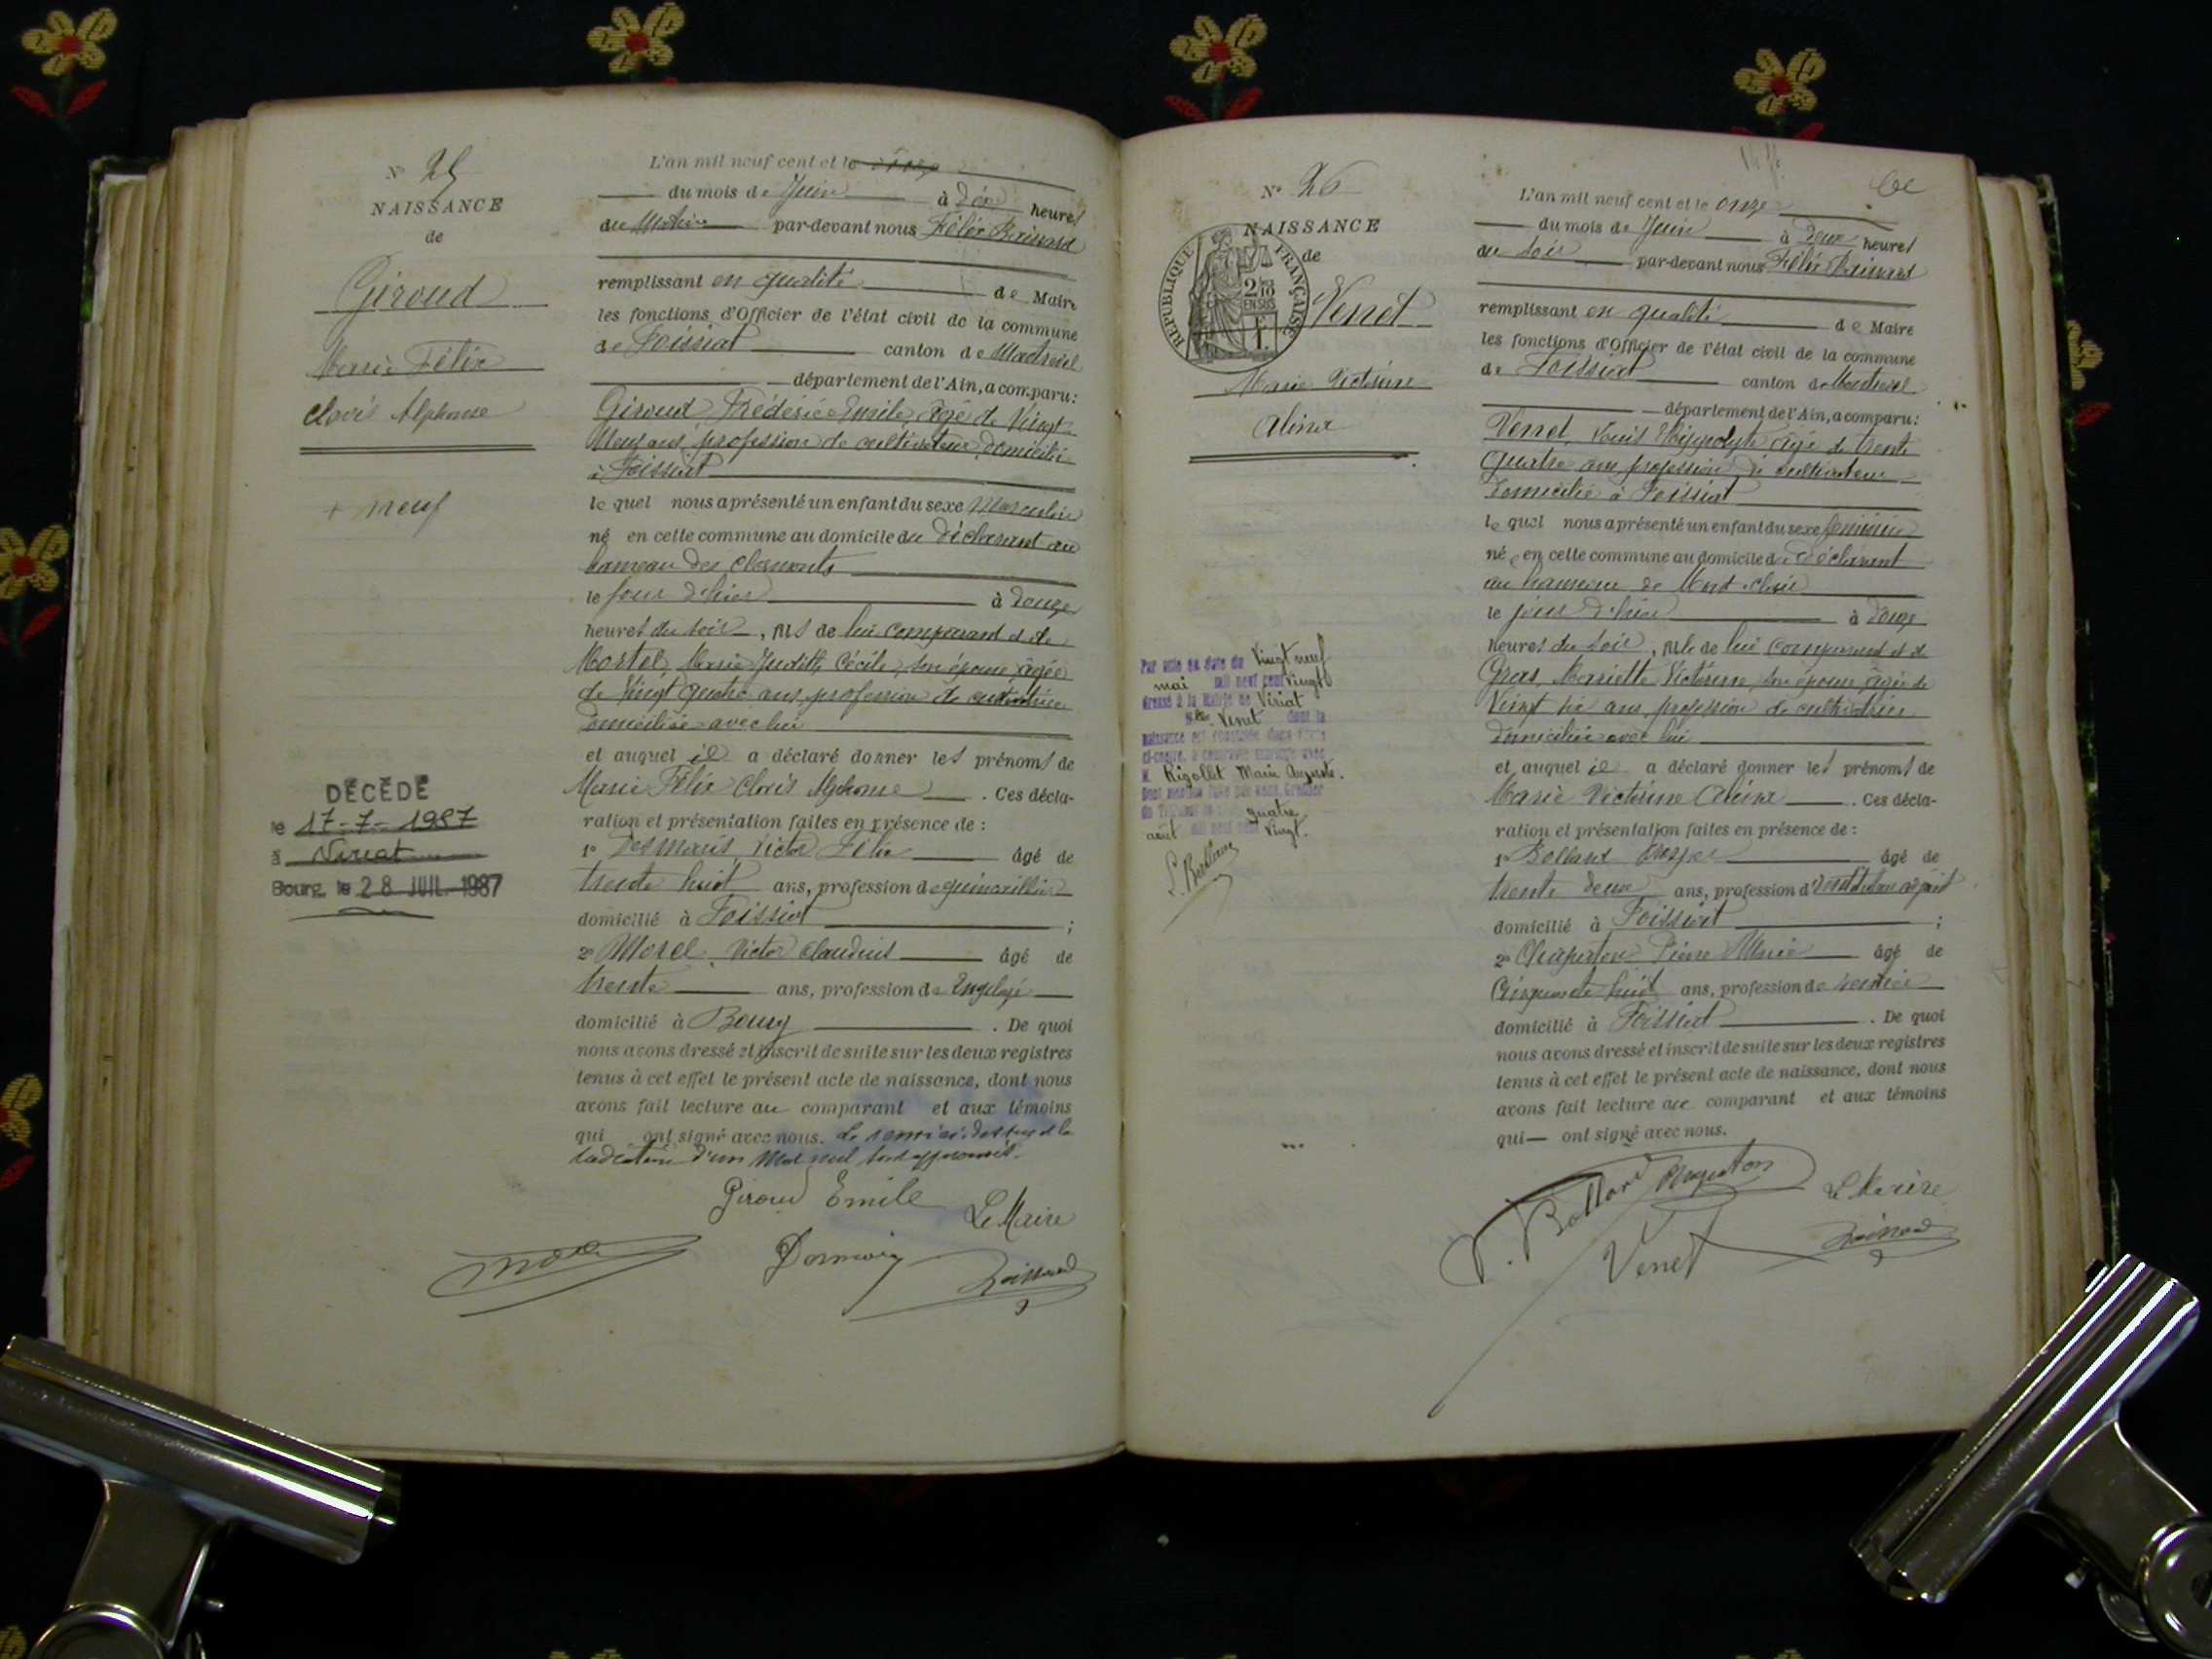 N° 25
NAISSANCE
de
Giroud
Marie Félix
Clovis Alphonse
+ neuf
DÉCÉDÉ
le 17-7-1987
à Viriat
Bourg, le 28 JUIL. 1987
L'an mil neuf cent et le onze
du mois de Juin à dix heures
du Matin par-devant nous Félix
remplissant en qualité de Maire
les fonctions d'Officier de l'état civil de la commune
de Foissiat canton de Montrevel
département de l'Ain, a comparu :
Giroud Frédéric Emile âgé de Vingt
Neuf ans, profession de cultivateur domicilié
à Foissiat
le quel nous a présenté un enfant du sexe Masculin
né en cette commune au domicile du déclarant au
hameau des
le jour d'hier à douze
heures du soir, fils de lui comparant et de
Morel, Marie Judith Cécile, son épouse, âgée
de Vingt quatre ans, profession de cultivatrice
domiciliée avec lui
et auquel il a déclaré donner les prénoms de
Marie Félix Clovis Alphonse. Ces décla-
ration et présentation faites en présence de :
1° Victor Félix âgé de
trente huit ans, profession de quincaillier
domicilié à Foissiat ;
2° Morel, Victor Claudius âgé de
trente ans, profession de Employé
domicilié à Bourg. De quoi
nous avons dressé et inscrit de suite sur les deux registres
tenus à cet effet le présent acte de naissance, dont nous
avons fait lecture au comparant et aux témoins
qui ont signé avec nous. Le renvoi ci-dessus et la
radiation d'un mot nul sont approuvés.
Giroud Emile
Le Maire
N° 26
NAISSANCE
de
RÉPUBLIQUE FRANÇAISE
2/10
EN SUS
Venet
Marie Victorine
Alina
Par acte en date du Vingt neuf
mai mil neuf cent Vingt
dressé à la Mairie de Viriat
Mlle Venet dont la
naissance est constatée dans l'acte
ci-contre, a contracté mariage avec
M. Rigollet Marie Auguste.
Dont mention faite par nous, Greffier
du Tribunal quatre
août mil neuf cent Vingt.
L'an mil neuf cent et le onze
du mois de Juin à deux heures
du soir par-devant nous Félix
remplissant en qualité de Maire
les fonctions d'Officier de l'état civil de la commune
de Foissiat canton de Montrevel
département de l'Ain, a comparu :
Venet, Louis Hippolyte âgé de trente
quatre ans, profession de cultivateur
domicilié à Foissiat
le quel nous a présenté un enfant du sexe féminin
née en cette commune au domicile du déclarant
au hameau de
le jour d'hier à douze
heures du soir, fille de lui comparant et de
Gras, Mariette Victorine, son épouse, âgée de
Vingt six ans, profession de cultivatrice
domiciliée avec lui
et auquel il a déclaré donner les prénoms de
Marie Victorine Alina. Ces décla-
ration et présentation faites en présence de :
1° Bolland âgé de
trente deux ans, profession d'
domicilié à Foissiat ;
2° Chapeton Pierre Marie âgé de
Cinquante huit ans, profession de rentier
domicilié à Foissiat. De quoi
nous avons dressé et inscrit de suite sur les deux registres
tenus à cet effet le présent acte de naissance, dont nous
avons fait lecture au comparant et aux témoins
qui ont signé avec nous.
Le Maire
Venet